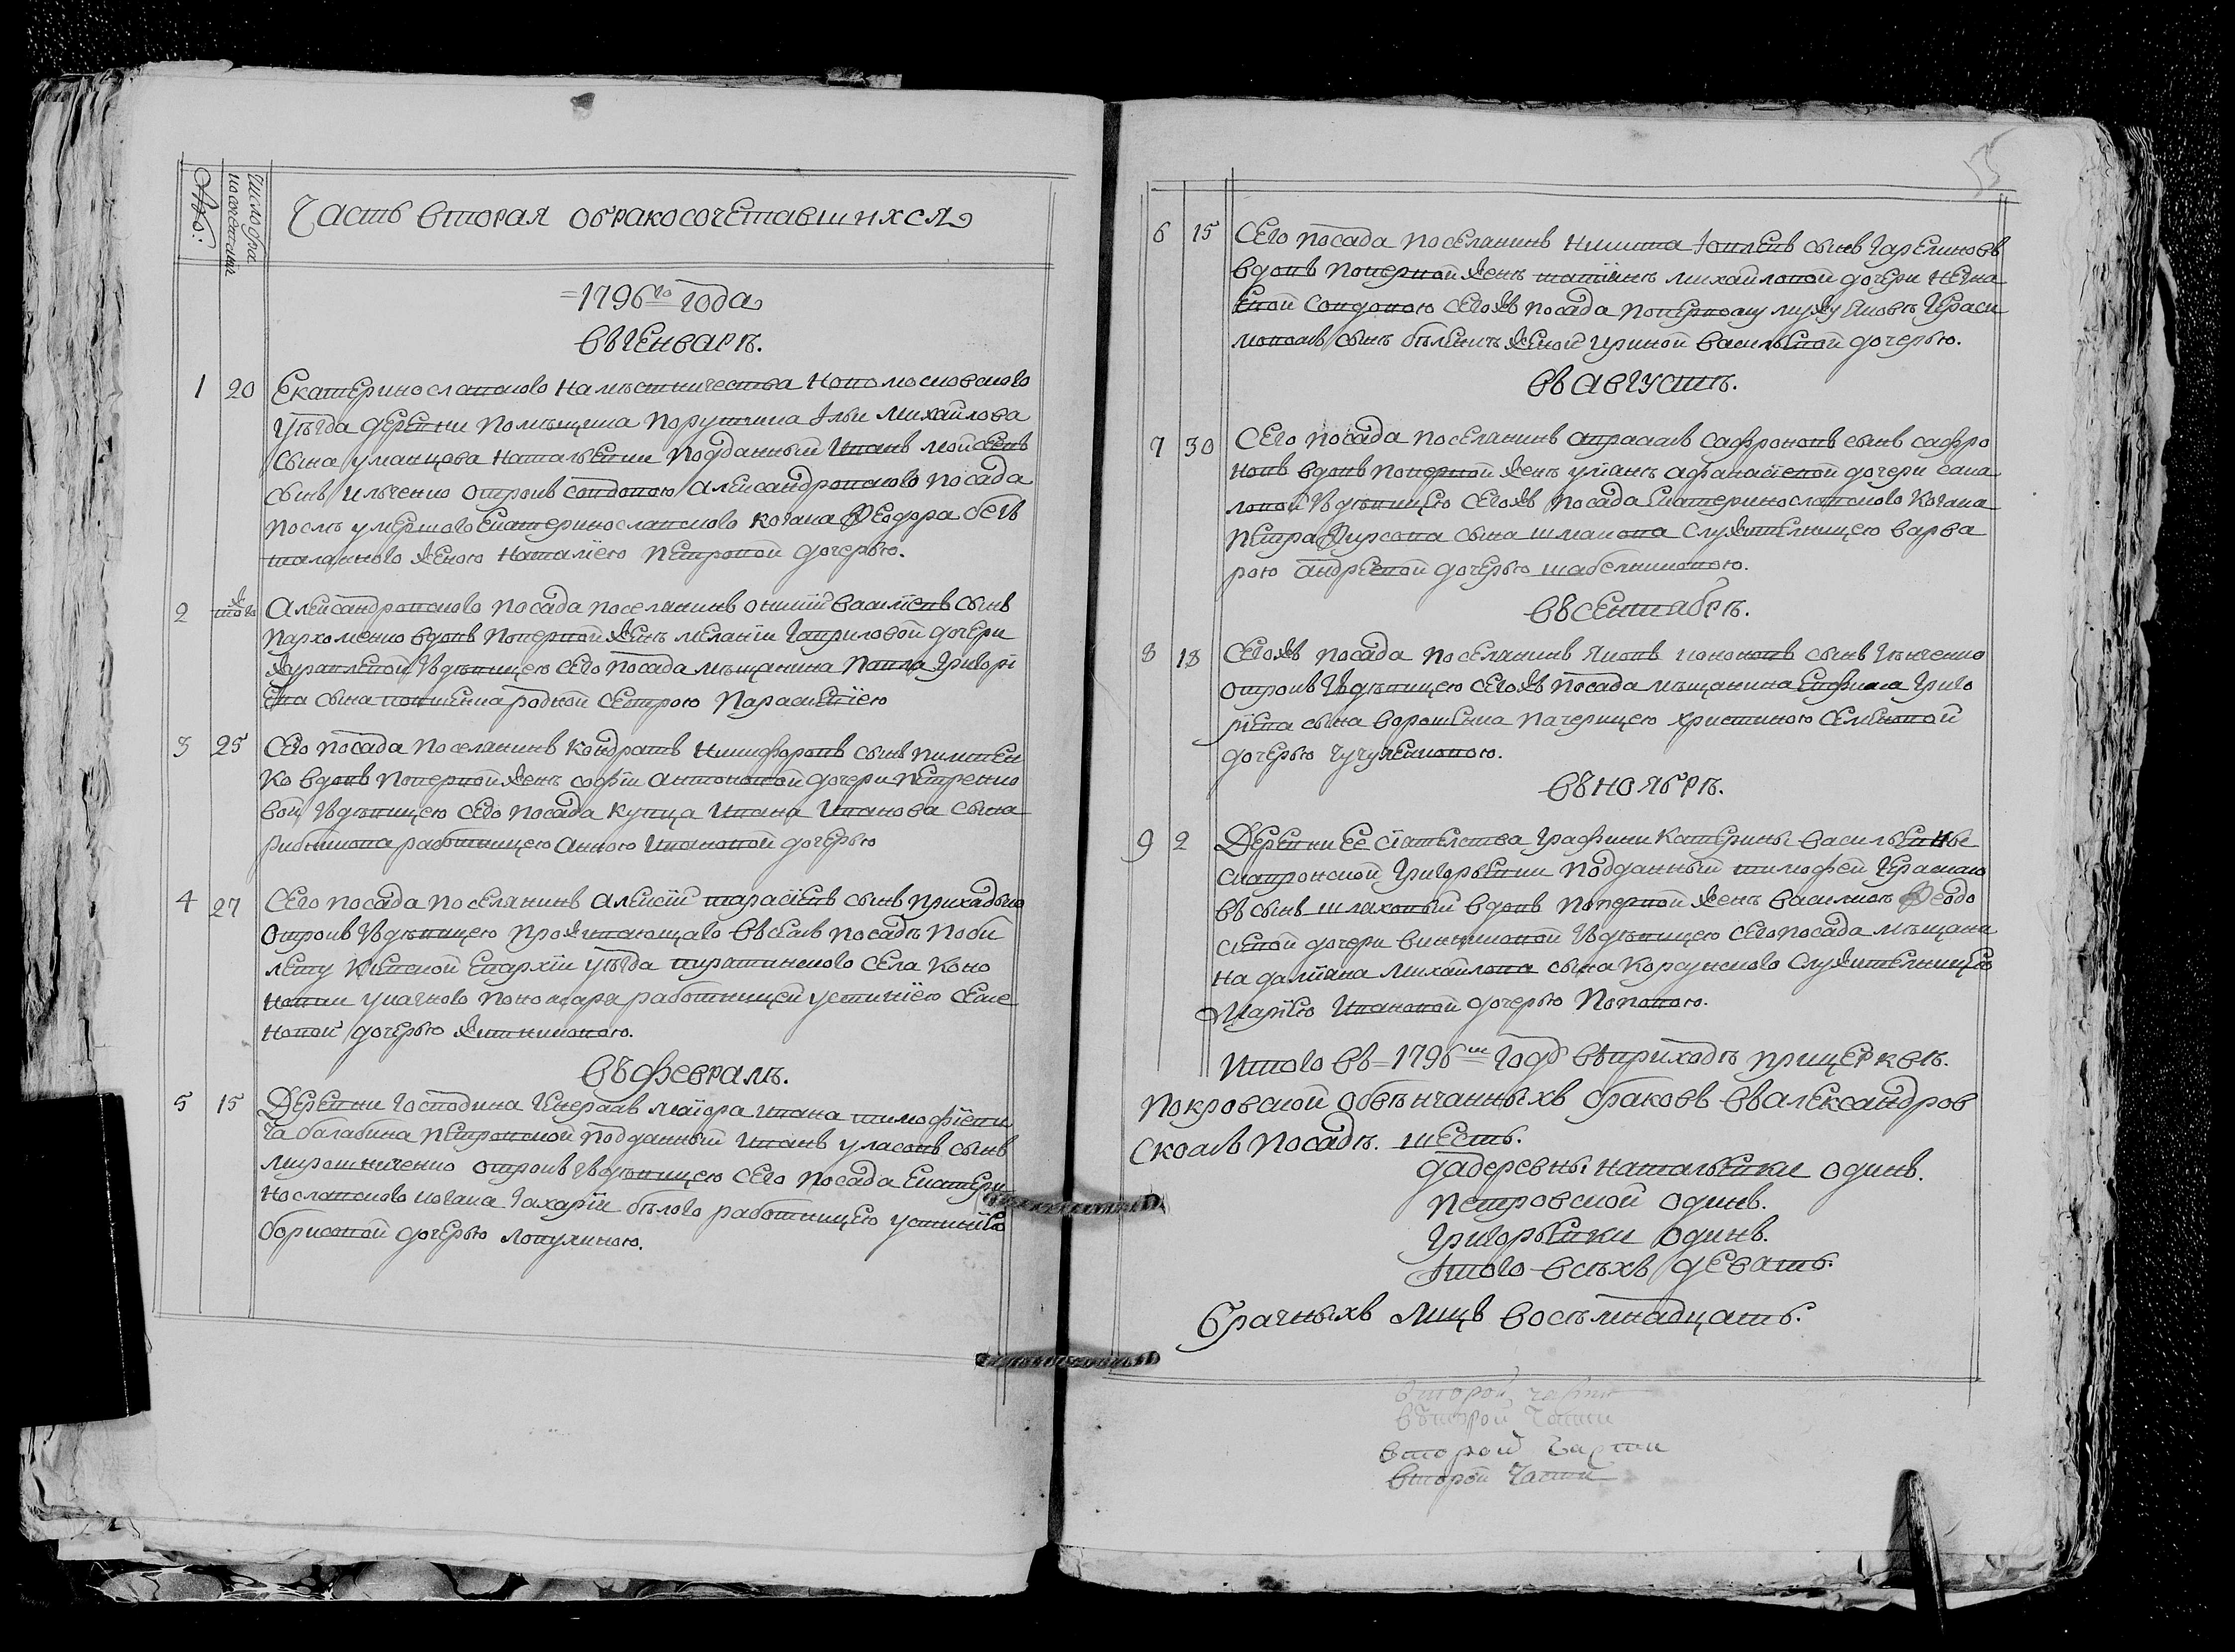 Часть вторая обракосочетавшихся
№:
Число бра
косочетаний
=1796го года
въ генварѣ.
1 20 Екатеринославского намѣстничества Новомосковского
уѣзда деревни помѣщика порутчика Ильи Михайлова
сына уманцова Натальевки подданный Иванъ Мойсеевъ
сынъ Ильченко отрокъ совдовою Александровского посада
послѣ умершого Екатеринославского козака Феодора безъ
таланного женою Наталіею Петровой дочерью.
2 тогожъ Александровского посада поселянинъ Василіевъ сынъ
Пархоменко вдовъ поперной женѣ Меланіи Гавриловой дочери
Журавлевой здѣвицею сего посада мѣщанина Павла Григорі
ева сына родной сестрою Параскевіею
3 25 Сего посада поселянинъ Кондратъ Никифоровъ сынъ Пилипен
ко вдовъ поперной женѣ Софіи Антоновой дочери Петренко
вой здѣвицею сего посада купца Ивана Иванова сына
Рибникова работницею Анною Ивановой дочерью
4 27 Сего посада поселянинъ Алексій Тарасіевъ сынъ Приходько
отрокъ здѣвицею проживающаго въ семъ посадѣ поби
лету Кіевской епархіи уѣзда пирятинского села Коно
новки пономаря работницей Устиніею Семе
новой дочерью Житниковою.
въ февралѣ.
5 15 Деревни господина генералъ маіора Ивана Тимофѣеви
ча Балабина Петровской подданный Иванъ Уласовъ сынъ
Мирошниченко отрокъ здѣвицею сего посада Екатери
нославского козака Захаріи Бѣлого работницею Устиніею
Борисовой дочерью Лопухиною.
6 15 Сего посада поселянинъ Никита Іовлевъ сынъ
вдовъ поперной женѣ Татіянѣ Михайловой дочери
совдовою сегожъ посада поперному мужу Яковѣ Гераси
мовомъ сынѣ женой Ириной Васильевой дочерью.
въ августѣ.
7 30 Сего посада поселянинъ Авраамъ Сафроновъ сынъ Сафро
новъ вдовъ поперной женѣ Уліянѣ Афанасіевой дочери Сама
ловой здѣвицею сегожъ посада Екатеринославского козака
Петра Фирсова сына Шмакова служительницею Варва
рою Андреевой дочерью Шабельниковою.
въ сентябрѣ.
8 18 Сегожъ посада поселянинъ Яковъ Кононовъ сынъ
отрокъ здѣвицею сегожъ посада мѣщанина Ефима Григо
ріева сына Ворошена пачерицею Христиною Семеновой
дочерью
въ ноябрѣ.
9 2 Деревни ее сіятелства графини Катерины Васильевны
Скавронской Григорьевки подданный Тимофей Герасимо
въ сынъ Шлаховый вдовъ поперной женѣ Василисѣ Феодо
сіевой дочери Винниковой здѣвицею сего посада мѣщани
на Даміана Михайлова сына Корсунского служительницею
Маріею Ивановой дочерью Поповою.
Итого въ =1796м году въ приходѣ прицерквѣ.
Покровской обвѣнчанныхъ браковъ въ Александров
скомъ посадѣ. шесть.
дадеревны Натальевки одинъ.
Петровской одинъ.
Григорьевки одинъ.
Итого всѣхъ девять.
Брачныхъ лицъ восѣмнадцать.
второй части
второй части
второй части
второй части